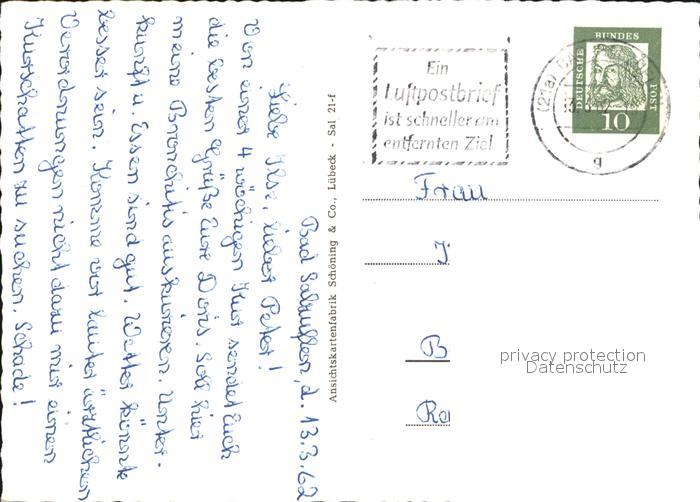 Bad Salzuflen, d. 13.3.62
Liebe Ilse, lieber Peter!
Von einer 4 wöchigen Kur sendet Euch
die besten Grüße Eure Doris. Soll hier
meine Bronchitis auskurieren. Unter-
kunft u. Essen sind gut. Wetter könnte
besser sein. Komme vor lauter ärztlichen
Verordnungen nicht dazu mir einen
Kurschatten zu suchen. Schade!
Ansichtskartenfabrik Schöning & Co., Lübeck - Sal 21-f
Ein
Luftpostbrief
ist schneller am
entfernten Ziel
(21a) BA
g
DEUTSCHE
BUNDES
POST
10
Frau
J
B
Re
privacy protection
Datenschutz